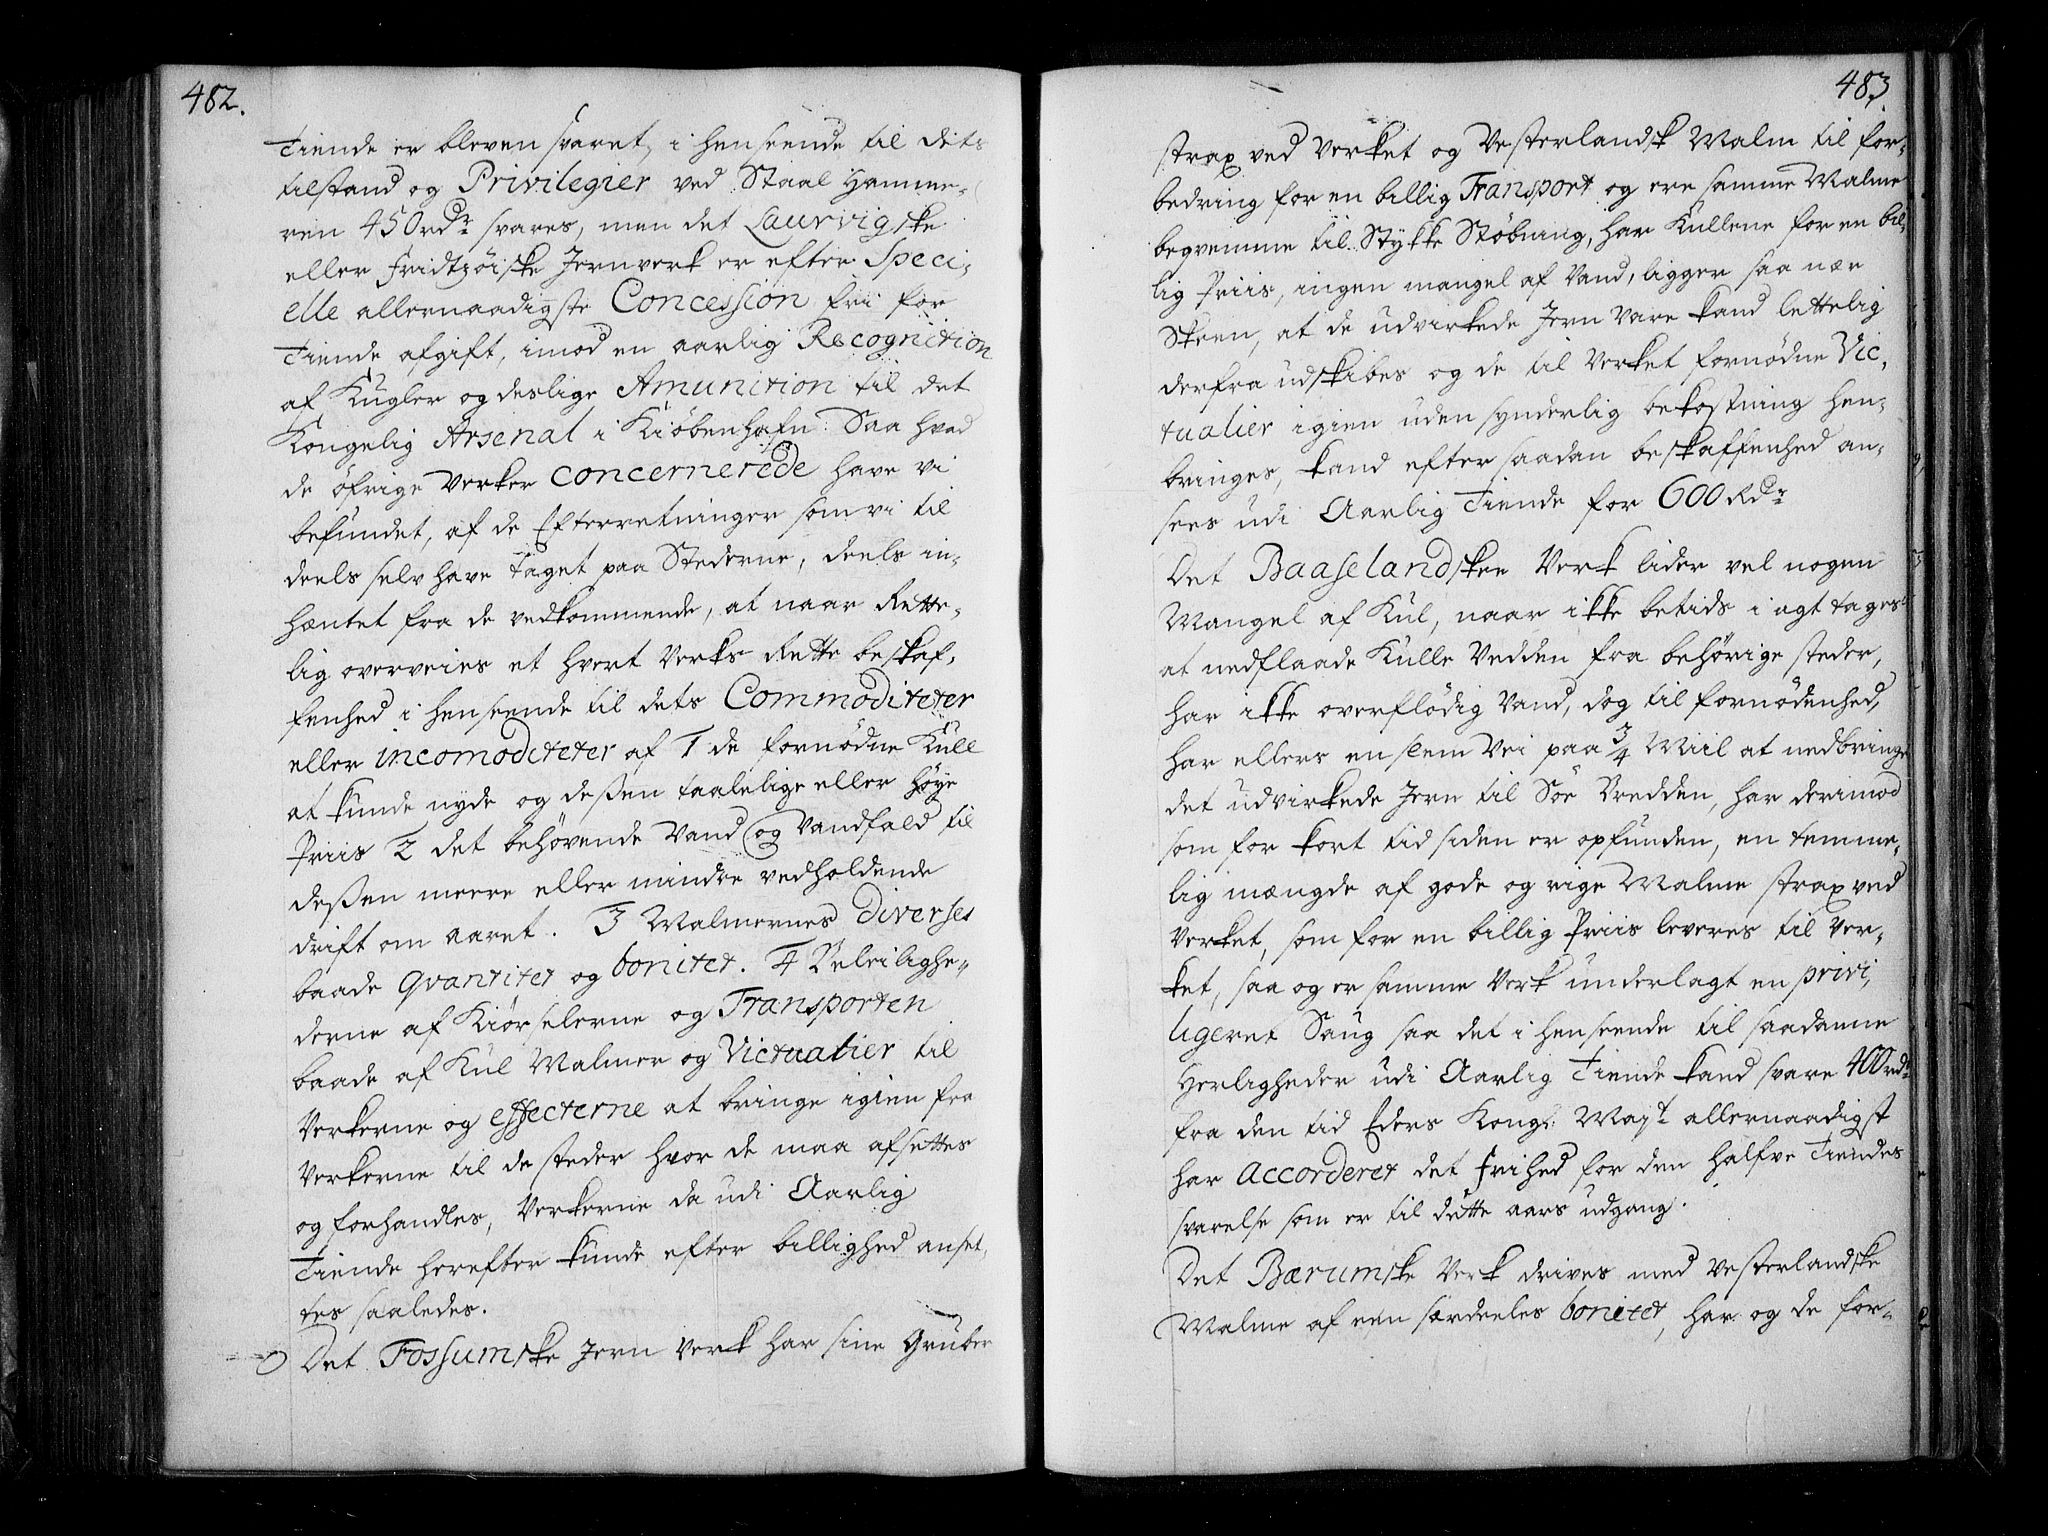 482.
Tiende er bleven svaret, i henseende til dets
tilstand og Privilegier ved Staal Hamme-
ren 450 rdr svares, men det Laurvigske
eller Fridtzöiske Jernverk er efter Speci-
elle allernaadigste Concession fri for
Tiende afgift, imod en aarlig Recognition
af Kugler og deslige Amunition til det
Kongelig Arsenal i Kiöbenhafn: Saa hvad
de öfrige Verker concernerede have vi
befundet, af de Efterretninger som vi til
deels selv have taget paa Stederne, deels in-
hæntet fra de vedkommende, at naar Rette-
lig overveies et hvert Verks Rette beskaf-
fenhed i henseende til dets Commoditeter
eller incomoditeter af 1 de fornødne Kull
at kunde nyde og deßen taalelige eller høye
Priis 2 det behøvende Vand og Vandfald til
deßen meere eller mindre vedholdende
drift om aaret. 3 Malmernes diverses
baade qvantitet og bonitet. 4 Beleilighe-
derne af Kiörselerne og Transporten
baade af Kul Malmer og Victualier til
Verkerne og effecterne at bringe igien fra
Verkerne til de steder hvor de maa afsettes
og forhandles, Verkerne da udi Aarlig
Tiende herefter kunde efter billighed anset-
tes saaledes.
Det Fossumske Jern Verk har sine Gruber
483
strax ved Verket og Vesterlandsk Malm til for-
bedring for en billig Transport og ere samme Malme
beqvemme til Stykke Støbning, har Kullene for en bil-
lig Priis, ingen mangel af Vand, ligger saa nær
Skeen, at de udvirkede Jern Vare kand lettelig
derfra udskibes og de til Verket fornødne Vic-
tualier igien uden synderlig bekostning hen-
bringes, kand efter saadan beskaffenhed an-
sees udi Aarlig Tiende for 600 Rdr
Det Baaselandsken Verk lider vel nogen
Mangel af Kul, naar ikke betids i agt tages
at nedflaade Kulle Vedden fra behörige steder,
har ikke overflödig Vand, dog til fornødenhed,
har ellers en slem Vei paa 3/4 Miil at nedbringe
det udvirkede Jern til Söe Bredden, har derimod
som for kort tid siden er opfunden, en temme-
lig mængde af gode og rige Malme strax ved
Verket, som for en billig Priis leveres til Ver-
ket, saa og er samme Verk underlagt en privi-
ligeret Saug saa det i henseende til saadanne
Herligheder udi Aarlig Tiende kand svare 400 rdr
fra den tid Eders Kongl: Mayt allernaadigst
har accorderet det frihed for den halfve Tiendes
svarelse som er til dette aars udgang.
Det Bærumske Verk drives med Vesterlandske
Malme af een særdeeles bonitet, har og de for-